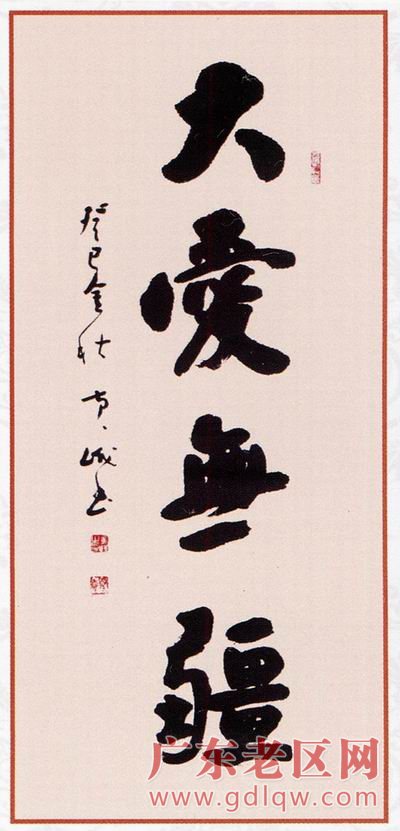 大愛無疆
癸巳金秋
书
广东老区网
www.gdlqw.com